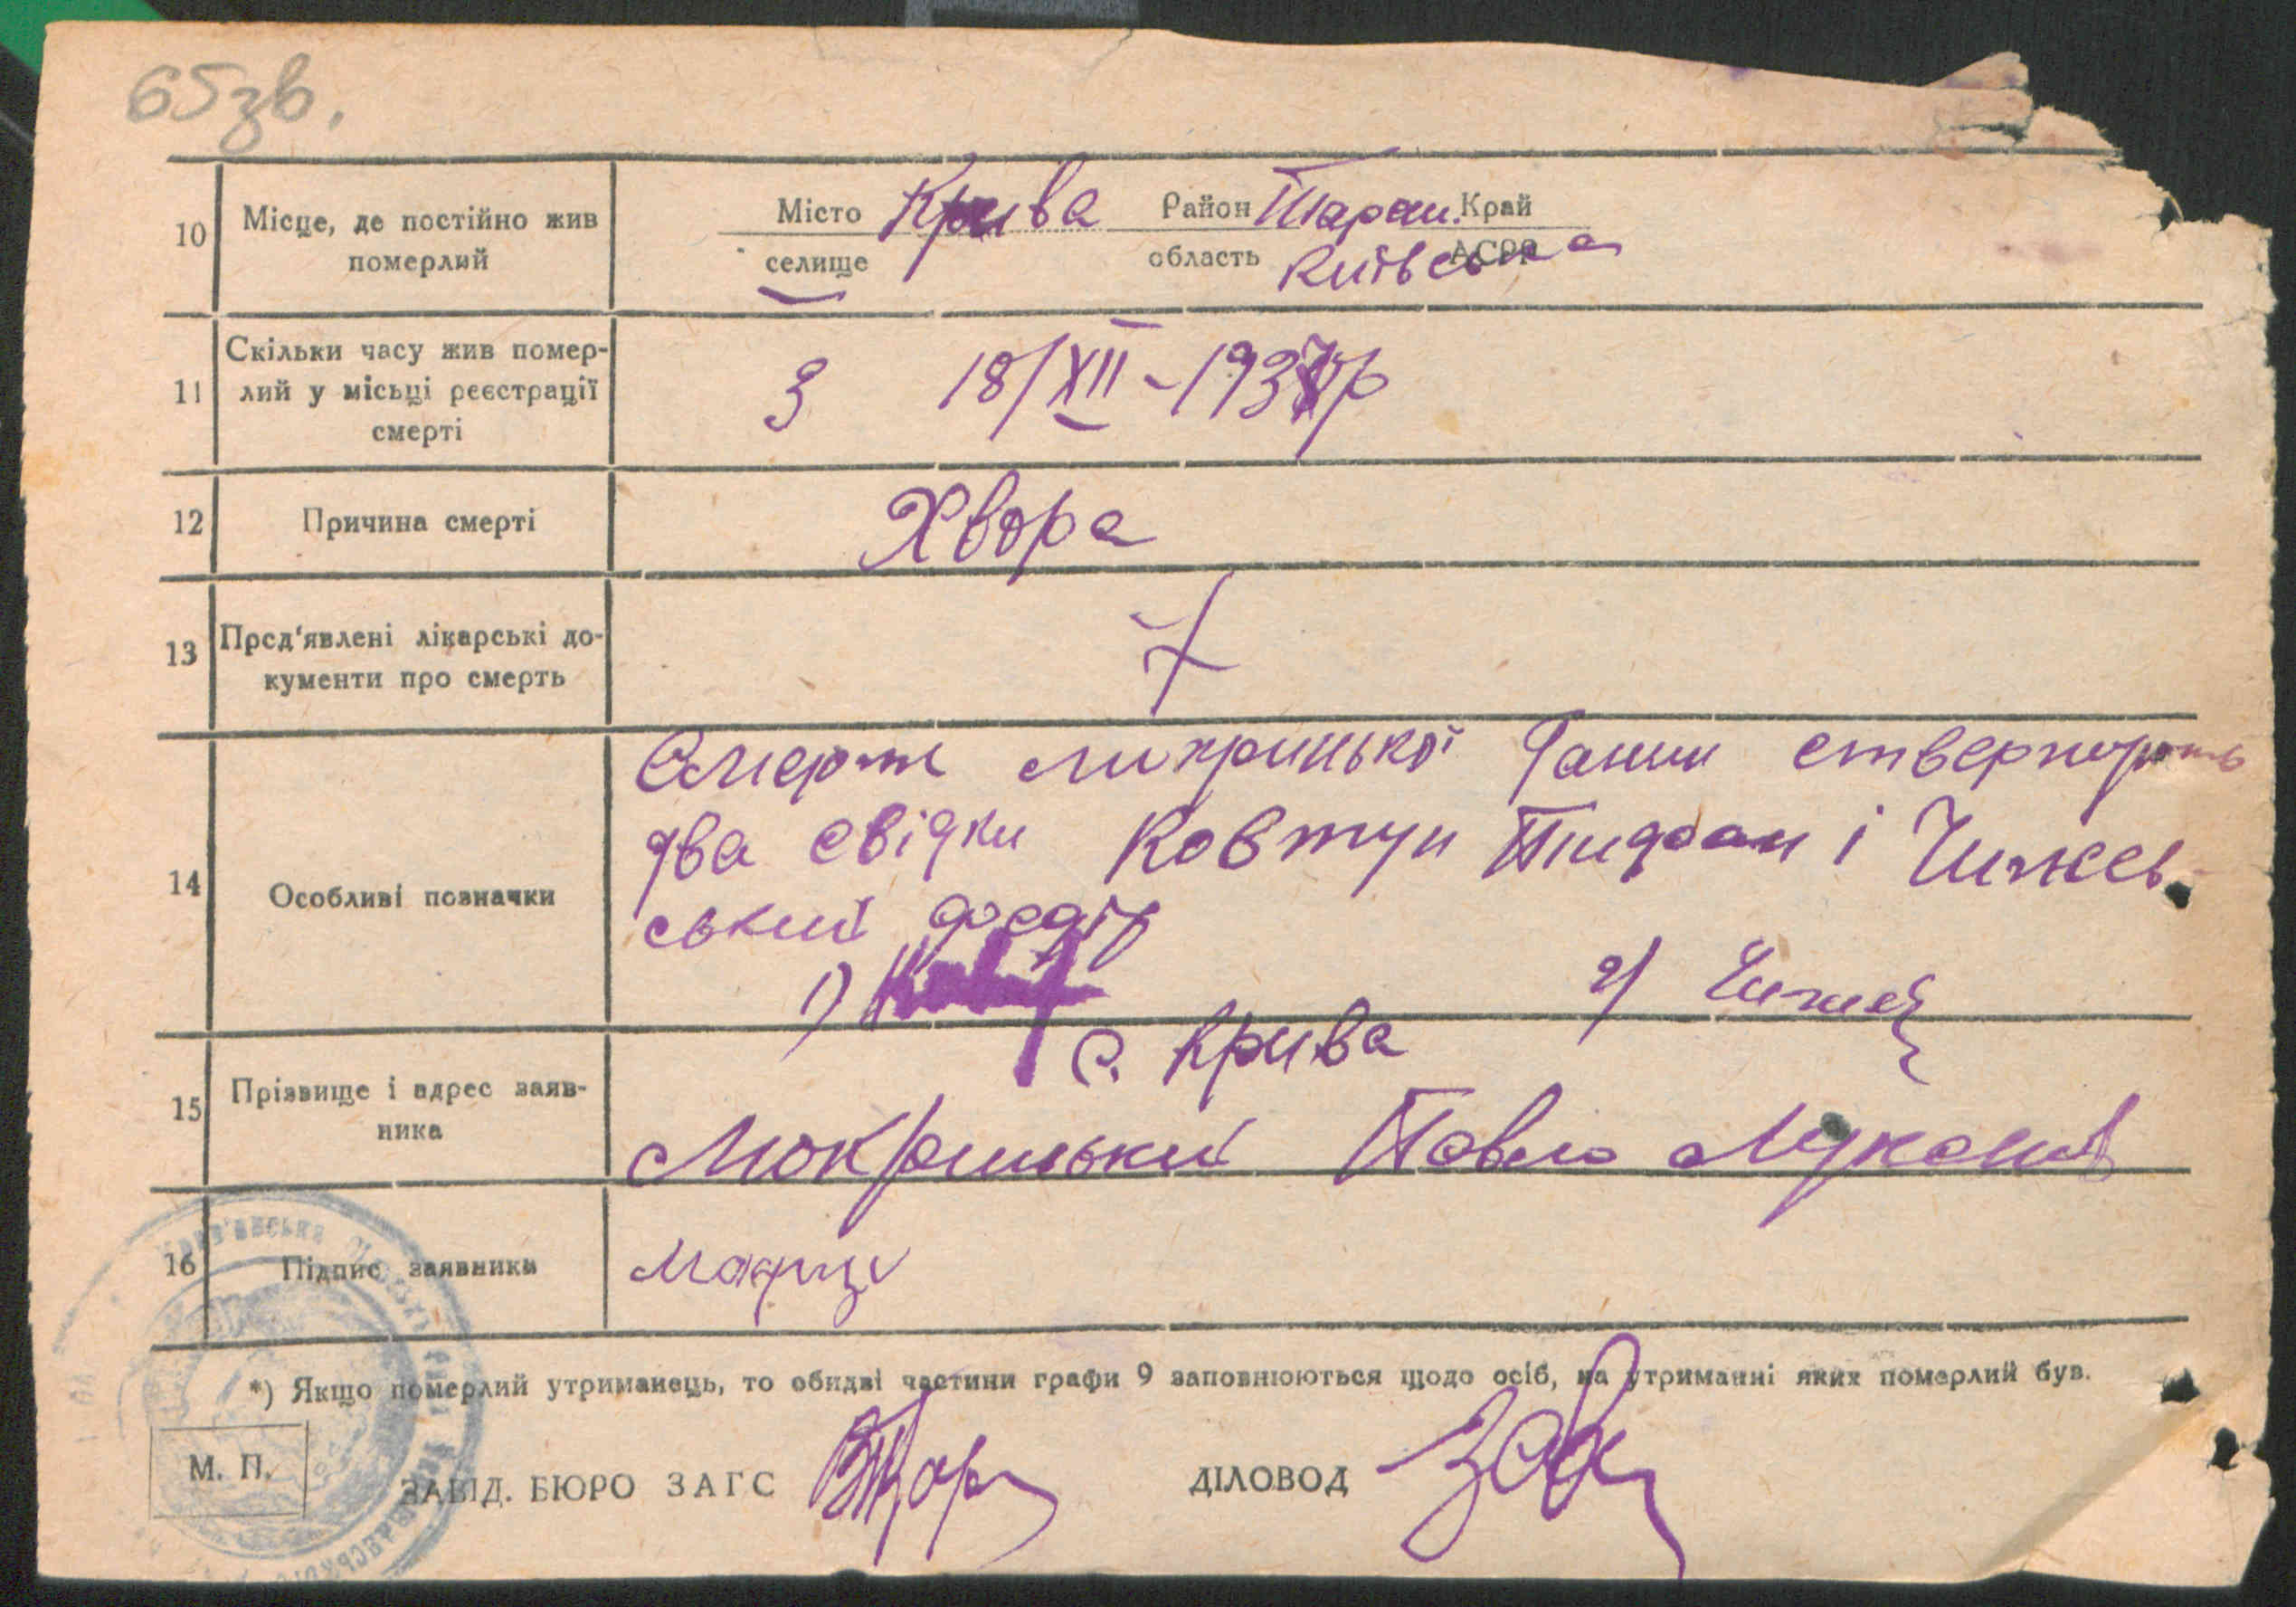 65зв.
10 Місце, де постійно жив померлий
Місто Крива Район Таращ. Край
селище область Київська АСРР
11 Скільки часу жив помер-
лий у місьці реєстрації
смерті
З 18/XII-1937р
12 Причина смерті
Хвора
13 Пред'явлені лікарські до-
кументи про смерть
14 Особливі позначки
Смерть Ганни
два свідки Ковтун і Чижев-
ський
1)
2) Чиж
15 Прізвище і адрес заяв-
ника
с. Крива
Мокрицький Павло
16 Підпис заявника
*) Якщо померлий утриманець, то обидві частини графи 9 заповнюються щодо осіб, на утриманні яких померлий був.
М. П.
ЗАВІД. БЮРО ЗАГС
ДІЛОВОД